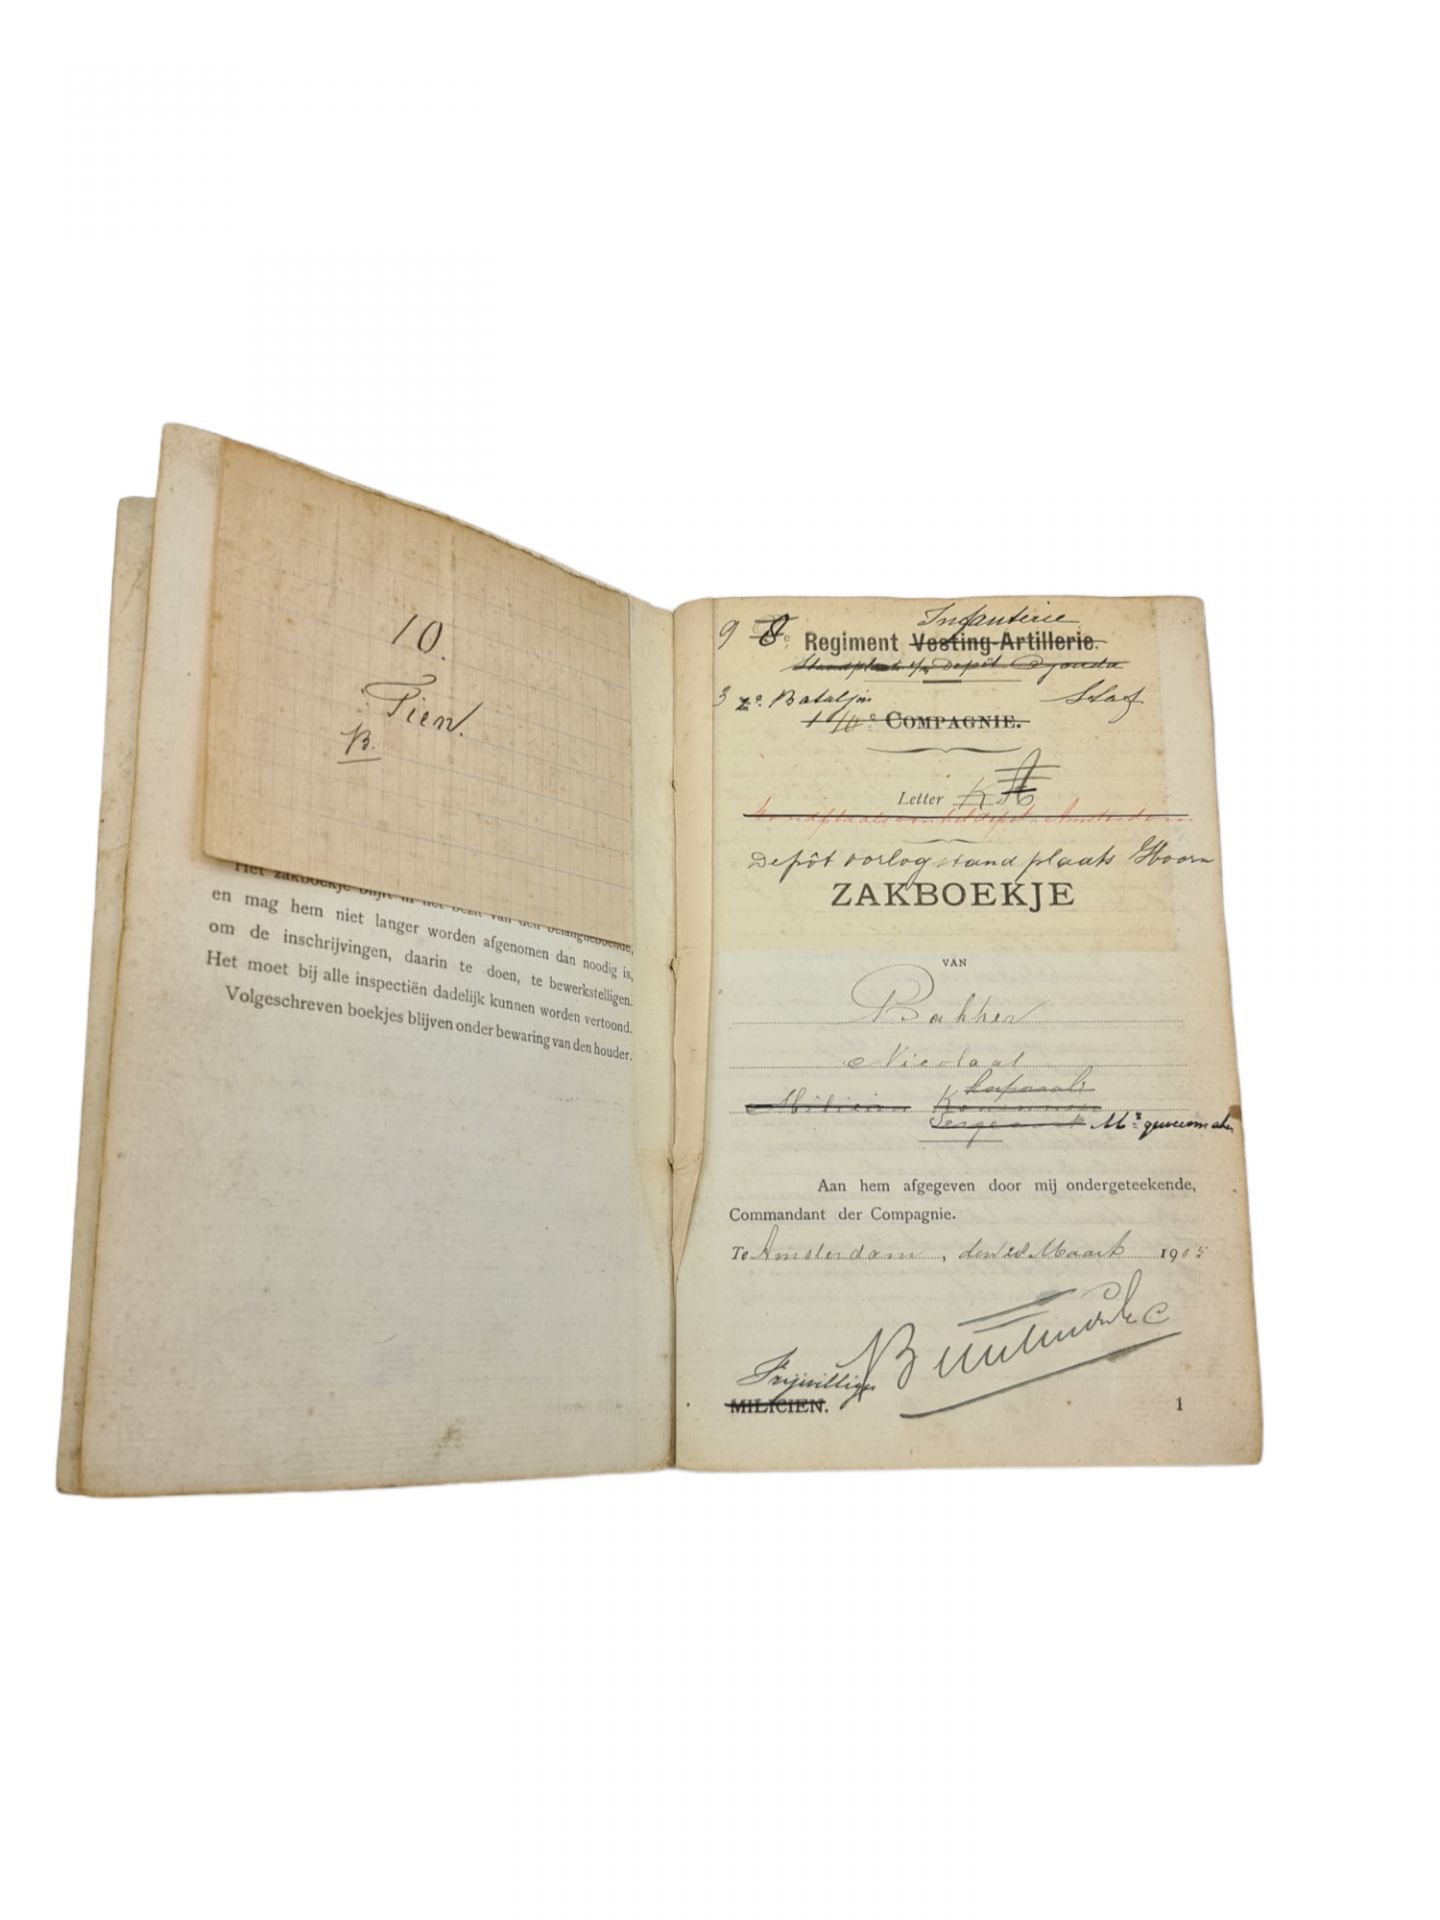 10.
Tien.
B.
Het zakboekje blijft in het bezit van den belanghebbende,
en mag hem niet langer worden afgenomen dan noodig is,
om de inschrijvingen, daarin te doen, te bewerkstelligen.
Het moet bij alle inspectiën dadelijk kunnen worden vertoond.
Volgeschreven boekjes blijven onder bewaring van den houder.
Infanterie
9 8e Regiment Vesting-Artillerie.
Standplaats Depôt Gouda
3 2e. Bataljon Staf
10e COMPAGNIE.
Letter K
Standplaats van het depôt Amsterdam
Depôt oorlogstandplaats Hoorn
ZAKBOEKJE
VAN
Bakker
Nicolaas
Korporaal
Milicien Kanonnier
Sergeant Mr geweermaker
Aan hem afgegeven door mij ondergeteekende,
Commandant der Compagnie.
Te Amsterdam, den Maart 1905
Vrijwilliger
MILICIEN.
1